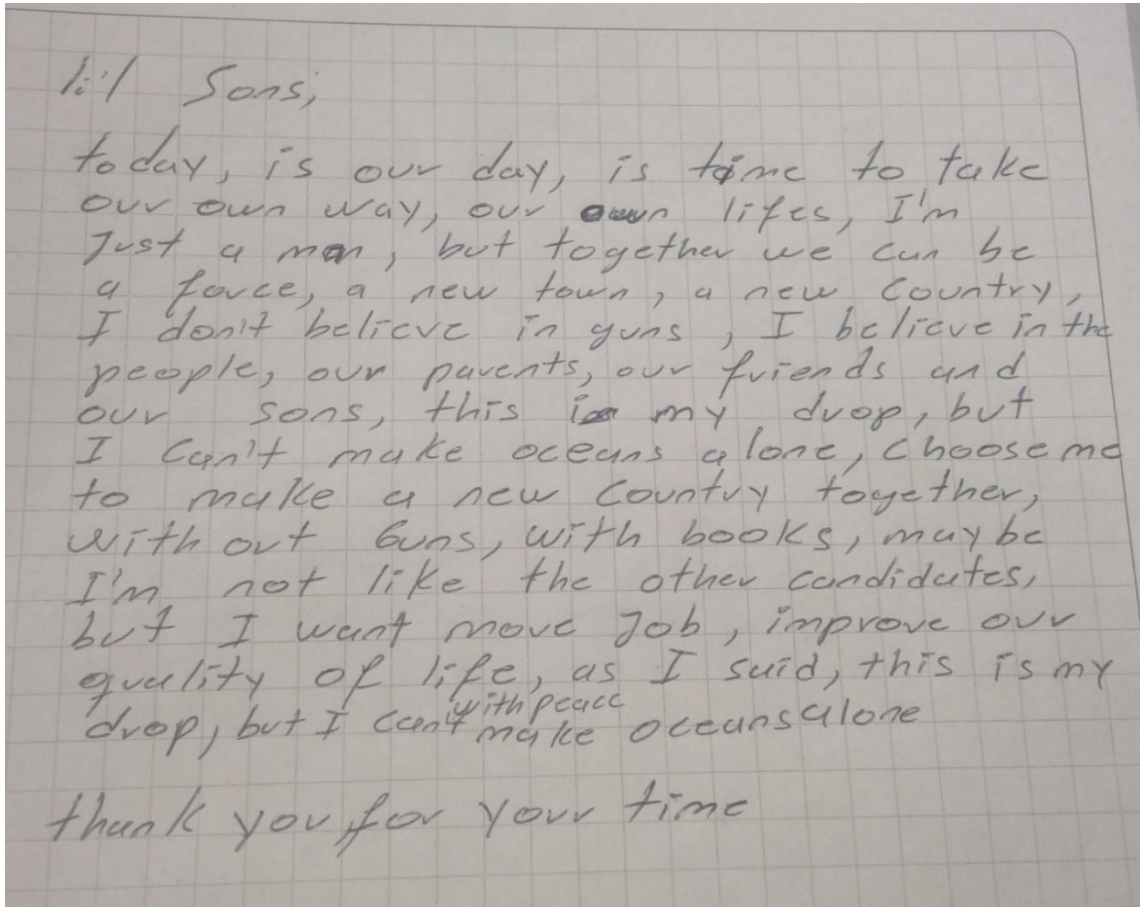 li'l Sons,
today, is our day, is time to take
our own way, our own lifes, I'm
Just a man, but together we can be
a force, a new town, a new country,
I don't believe in guns, I believe in the
people, our parents, our friends and
our sons, this is my drop, but
I can't make oceans alone, choose me
to make a new country together,
with out Guns, with books, maybe
I'm not like the other candidates,
but I want move Job, improve our
quality of life, as I said, this is my
with peace
drop, but I can't make oceans alone
thank you for your time